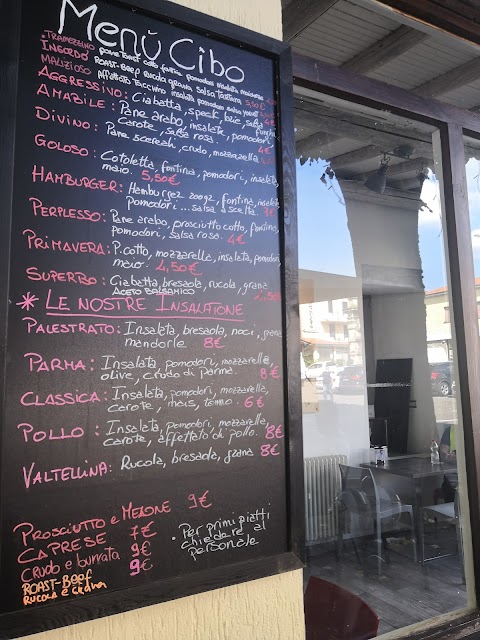 Menù Cibo
TRAMEZZINO: pane bianco, cotto, fontina, pomodoro, insalata, maionese
INGORDO: ROAST-BEEF, rucola, grana, salsa tartara 5,50€
MALIZIOSO: Affettato tacchino, insalata, pomodori, salsa yogurt
AGGRESSIVO: Ciabatta, speck, brie, salsa funghi
AMABILE: Pane arabo, insalata, pomodori,
carote, salsa rosa. 4€
DIVINO: Pane sesamo, crudo, mozzarella
GOLOSO: Cotoletta, fontina, pomodori, insalata,
maio. 5,50€
HAMBURGER: Hamburger 200gr, fontina, insalata
pomodori ... salsa a scelta. 7€
PERPLESSO: Pane arabo, prosciutto cotto, fontina,
pomodori, salsa rosa. 4€
PRIMAVERA: P.cotto, mozzarella, insalata, pomodori
maio. 4,50€
SUPERBO: Ciabatta, bresaola, rucola, grana
ACETO BALSAMICO
* LE NOSTRE INSALATONE
PALESTRATO: Insalata, bresaola, noci, grana
mandorle 8€
PARMA: Insalata, pomodori, mozzarella,
olive, crudo di Parma. 8€
CLASSICA: Insalata, pomodori, mozzarella,
carote, mais, tonno. 6€
POLLO: Insalata, pomodori, mozzarella,
carote, affettato di pollo. 8€
VALTELLINA: Rucola, bresaola, grana 8€
PROSCIUTTO e MELONE 9€
CAPRESE 7€
CRUDO e burrata 9€
ROAST-BEEF 9€
RUCOLA E GRANA
• Per primi piatti
chiedere al
personale